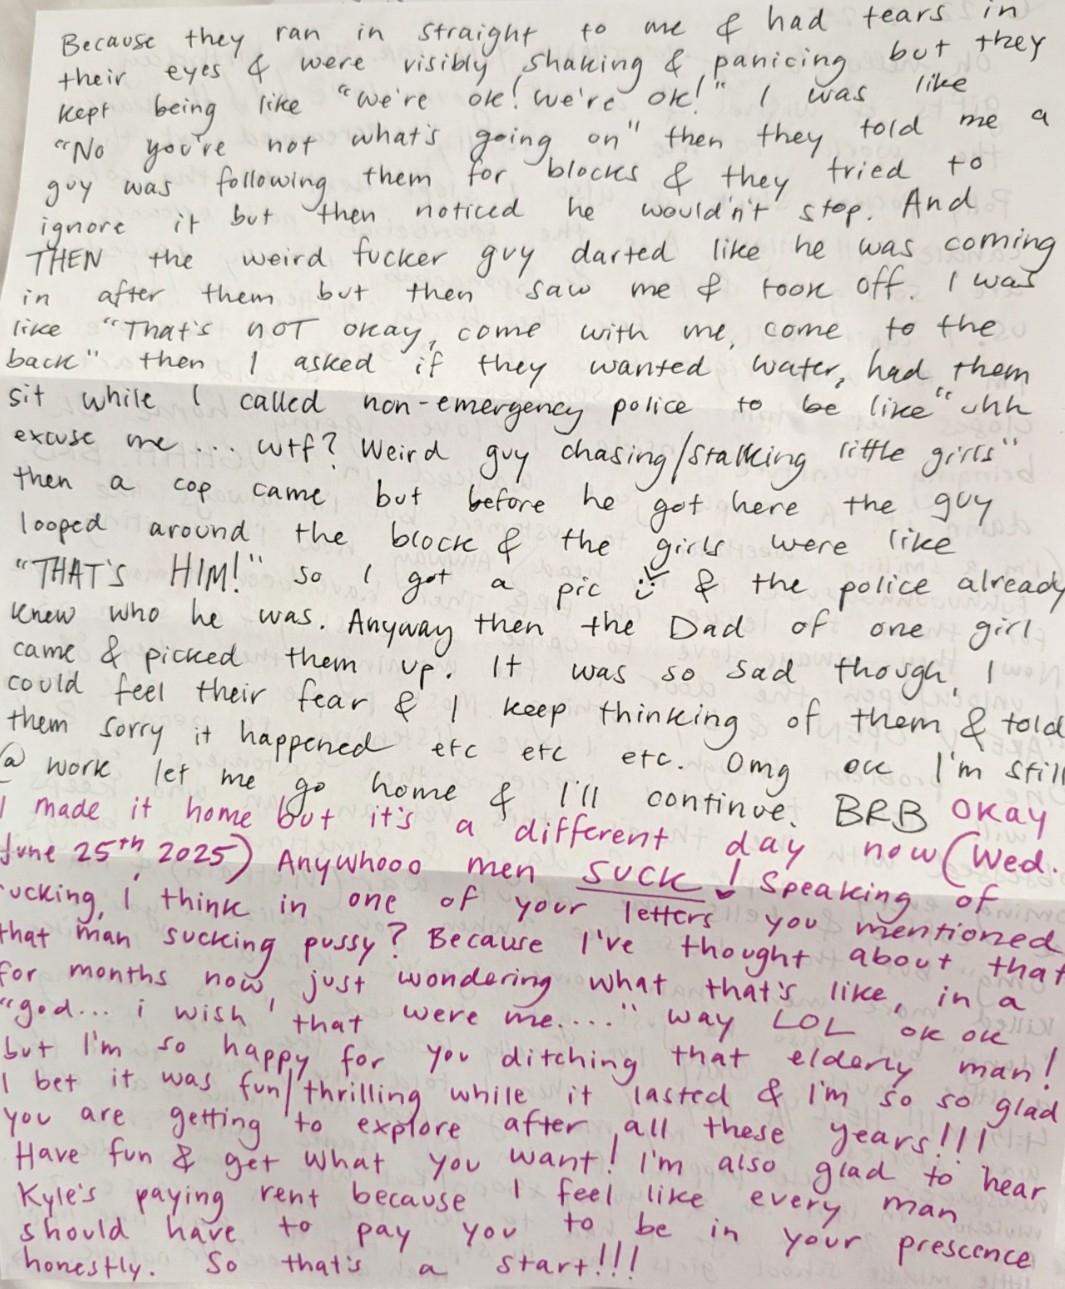 Because they ran in straight to me & had tears in
their eyes & were visibly shaking & panicing but they
kept being like "we're ok! we're ok!" I was like
"No you're not what's going on" then they told me a
guy was following them for blocks & they tried to
ignore it but then noticed he wouldn't stop. And
THEN the weird fucker guy darted like he was coming
in after them but then saw me & took off. I was
like "That's NOT okay, come with me, come to the
back" then I asked if they wanted water, had them
sit while I called non-emergency police to be like "uhh
excuse me... wtf? Weird guy chasing/stalking little girls"
then a cop came but before he got here the guy
looped around the block & the girls were like
"THAT'S HIM!" so I got a pic & the police already
knew who he was. Anyway then the Dad of one girl
came & picked them up. It was so sad though, I
could feel their fear & I keep thinking of them & told
them sorry it happened etc etc etc. Omg ok I'm still
@ work let me go home & I'll continue. BRB OKAY
I made it home but it's a different day now (Wed.
June 25th, 2025) Anywhooo men SUCK! Speaking of
sucking, I think in one of your letters you mentioned
that man sucking pussy? Because I've thought about that
for months now, just wondering what that's like, in a
"god... i wish that were me...." way LOL ok ok
but I'm so happy for you ditching that elderly man!
I bet it was fun/thrilling while it lasted & I'm so so glad
you are getting to explore after all these years!!!
Have fun & get what you want! I'm also glad to hear
Kyle's paying rent because I feel like every man
should have to pay you to be in your prescence
honestly. So that's a start!!!